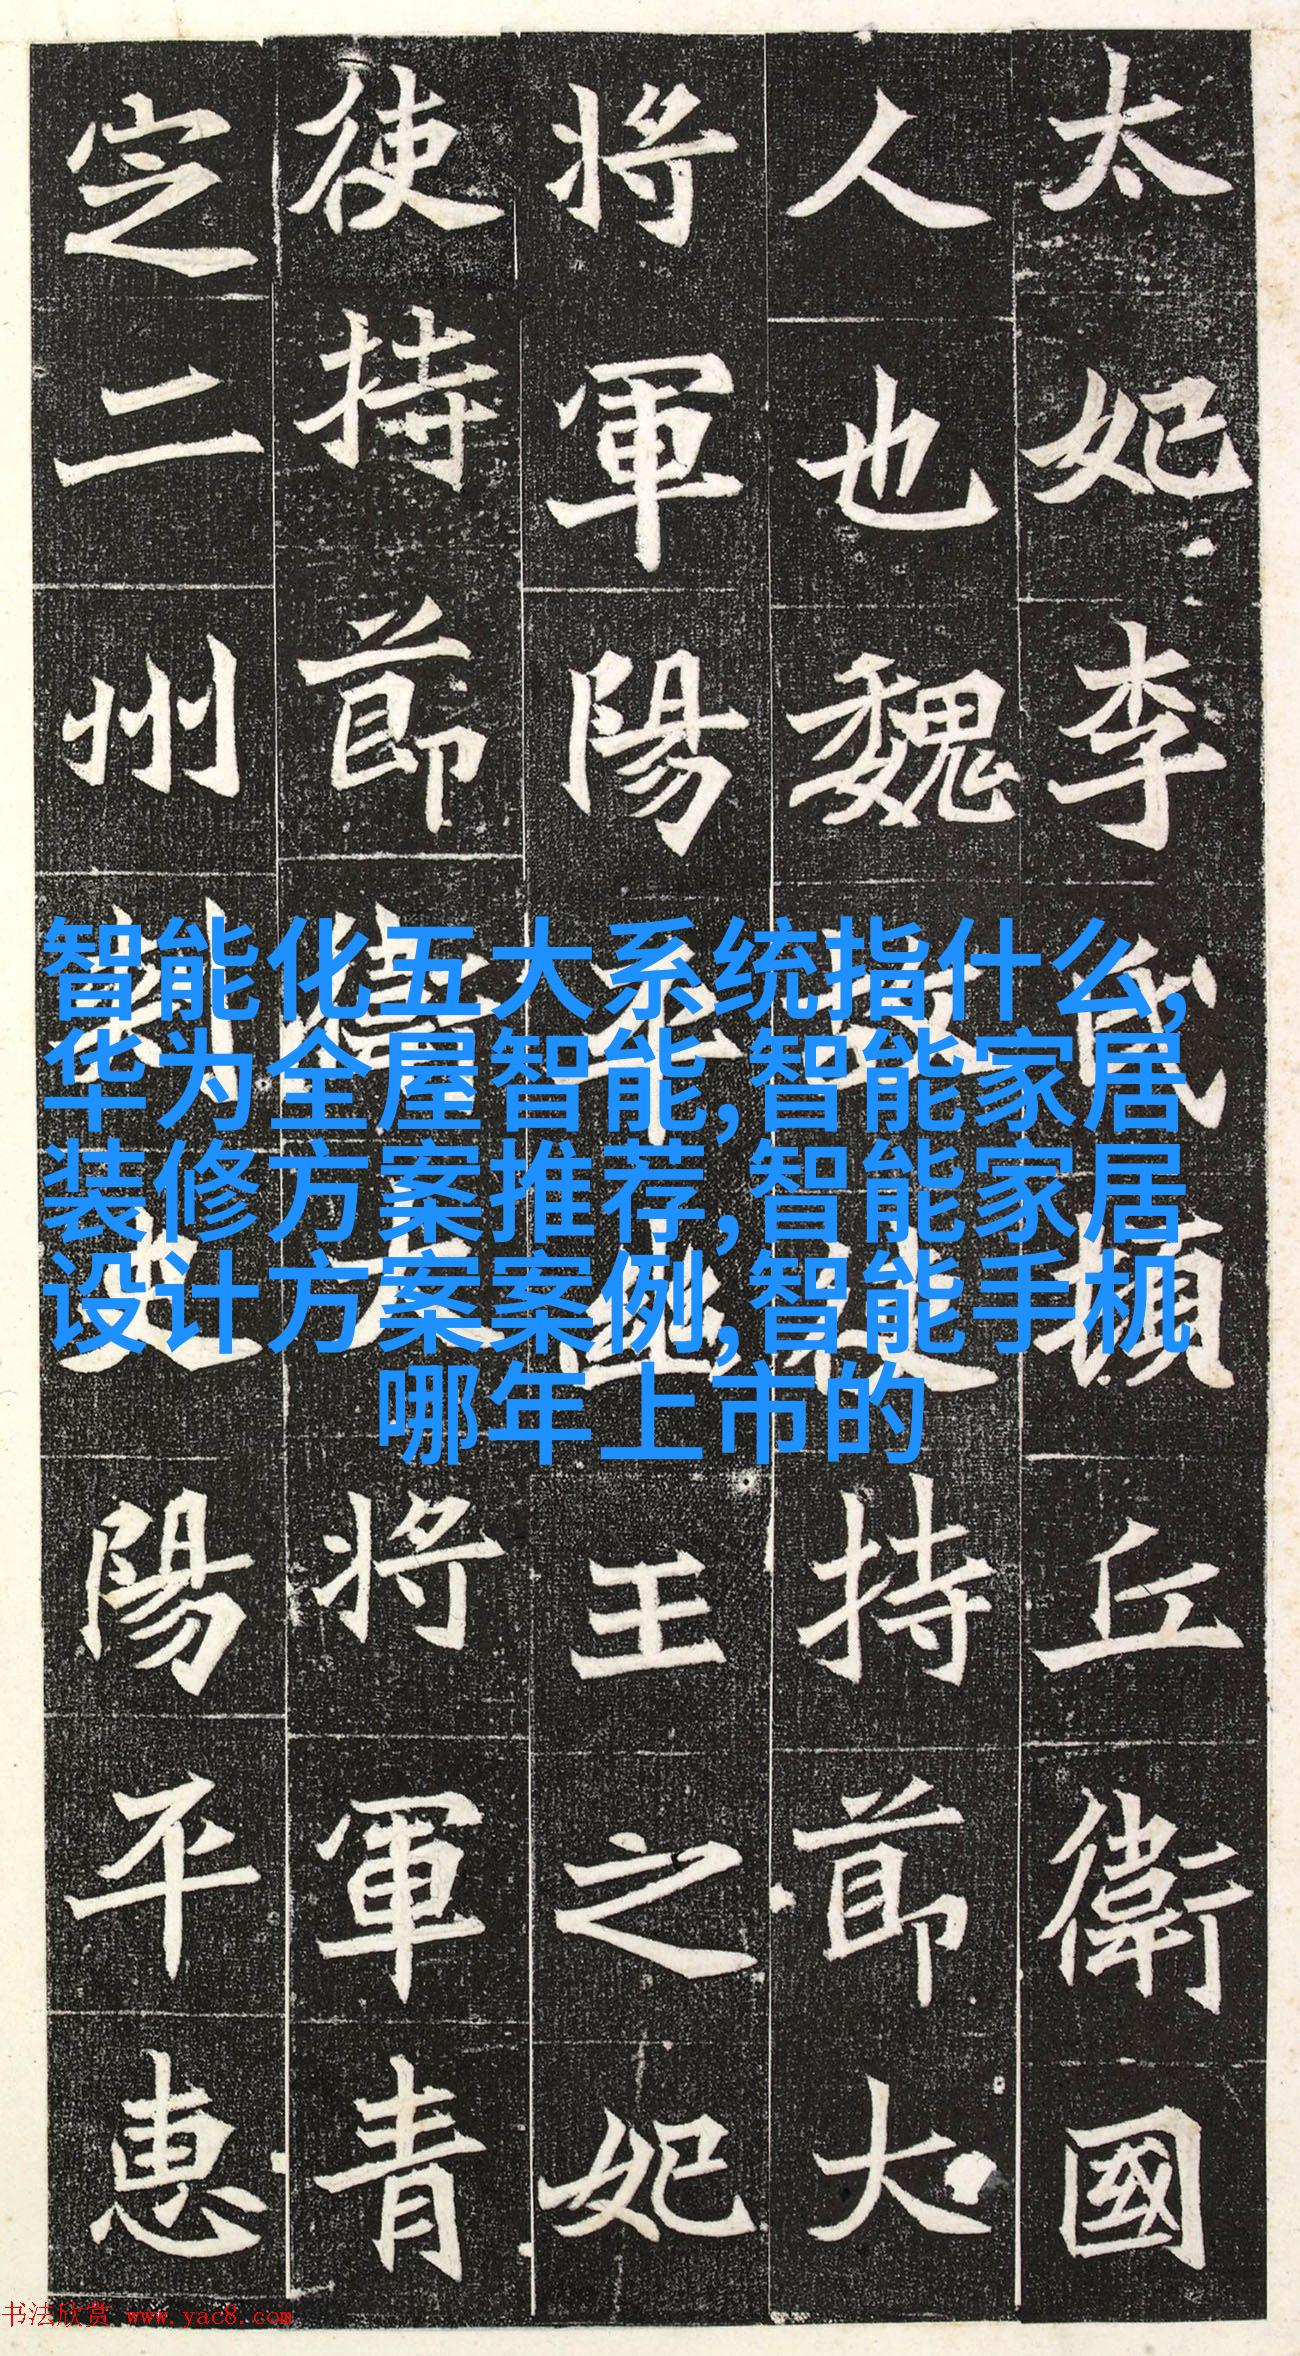 太妃李氏頓丘衛國
人也魏故使持節大
將軍陽平幽王之妃
使持節衛大將軍青
定二州刺史陽平惠
智能化五大系统指什么,
华为全屋智能,智能家居
装修方案推荐,智能家居
设计方案案例,智能手机
哪年上市的
书法欣赏 www.yac8.com